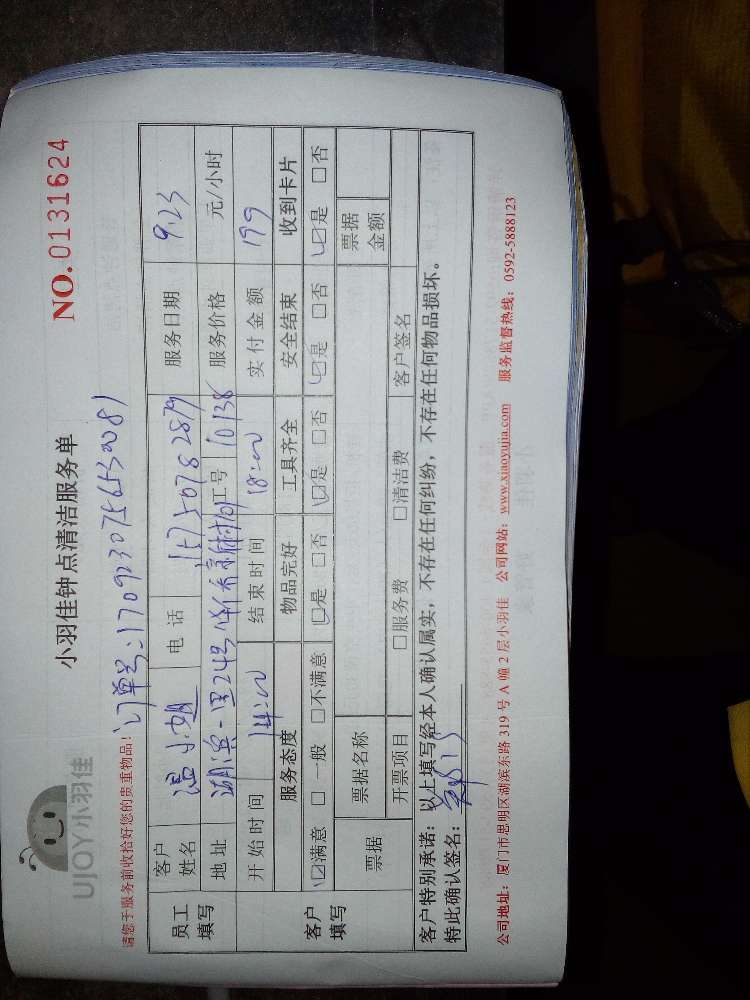 UJOY小羽佳
小羽佳钟点清洁服务单
NO.0131624
请您于服务前收拾好您的贵重物品！
订单号:17092307565330081
员工填写 客户姓名 温小姐 电话 15750782879 服务日期 9.23
地址 湖滨一里24号 工号 10138 服务价格 元/小时
开始时间 14:00 结束时间 18:00 实付金额 199
客户填写 服务态度 物品完好 工具齐全 安全结束 收到卡片
☑满意 □一般 □不满意 ☑是 □否 ☑是 □否 ☑是 □否 ☑是 □否
票据 票据名称 票据金额
开票项目 □服务费 □清洁费 客户签名
客户特别承诺：以上填写经本人确认属实，不存在任何纠纷，不存在任何物品损坏。
特此确认签名：
公司地址：厦门市思明区湖滨东路 319 号 A 幢 2 层小羽佳 公司网站：www.xiaoyujia.com 服务监督热线：0592-5888123